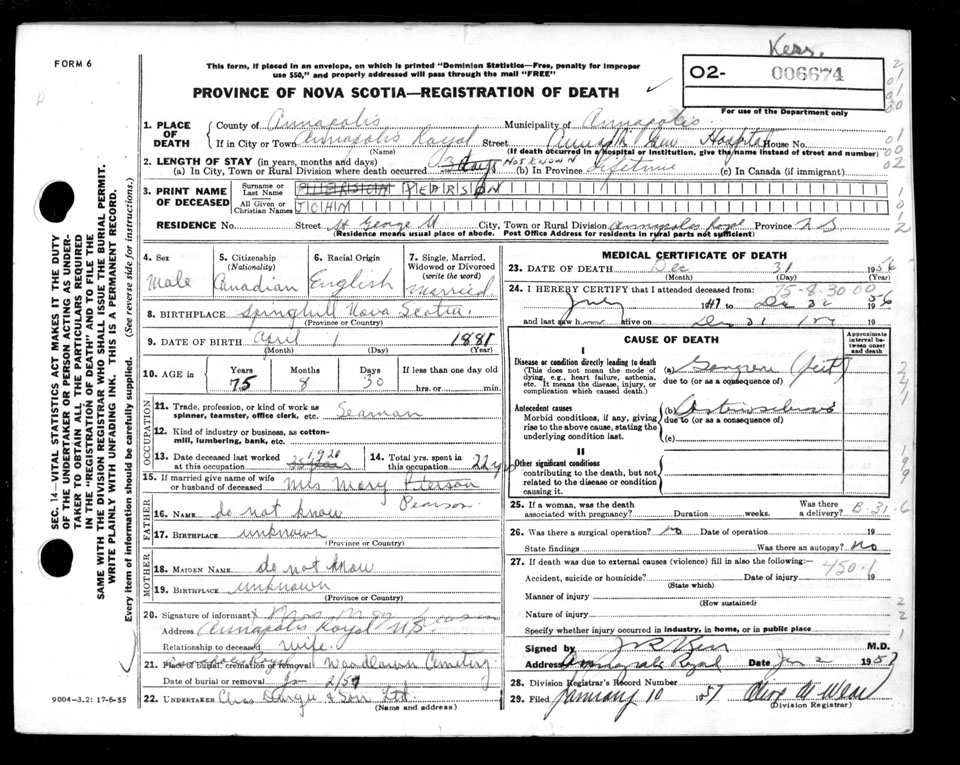 Kerr.
FORM 6
This form, if placed in an envelope, on which is printed "Dominion Statistics—Free, penalty for improper
use $50," and properly addressed will pass through the mail "FREE"
O2- 006674
PROVINCE OF NOVA SCOTIA—REGISTRATION OF DEATH
For use of the Department only
1. PLACE OF DEATH
County of Annapolis Municipality of Annapolis
If in City or Town Annapolis Royal Street Hospital House No.
(Name) (If death occurred in a hospital or institution, give the name instead of street and number)
2. LENGTH OF STAY (in years, months and days)
(a) In City, Town or Rural Division where death occurred 3 days NOT KNOWN (b) In Province Lifetime (c) In Canada (if immigrant)
3. PRINT NAME OF DECEASED
Surname or Last Name PEARSON
All Given or Christian Names JOHN
RESIDENCE No. Street St George St City, Town or Rural Division Annapolis Royal Province N S
(Residence means usual place of abode. Post Office Address for residents in rural parts not sufficient)
4. Sex Male
5. Citizenship (Nationality) Canadian
6. Racial Origin English
7. Single, Married, Widowed or Divorced (write the word) Married
8. BIRTHPLACE Springhill Nova Scotia
(Province or Country)
9. DATE OF BIRTH April 1 1881
(Month) (Day) (Year)
10. AGE in Years 75 Months 8 Days 30 If less than one day old
hrs. or min.
OCCUPATION
11. Trade, profession, or kind of work as spinner, teamster, office clerk, etc. Seaman
12. Kind of industry or business, as cotton-mill, lumbering, bank, etc.
13. Date deceased last worked at this occupation 1920
14. Total yrs. spent in this occupation 22 yrs
15. If married give name of wife or husband of deceased Mrs Mary Pierson
Pearson
FATHER
16. NAME do not know
17. BIRTHPLACE unknown
(Province or Country)
MOTHER
18. MAIDEN NAME do not know
19. BIRTHPLACE unknown
(Province or Country)
20. Signature of informant x Mrs
Address Annapolis Royal N.S.
Relationship to deceased wife.
21. Place of burial, cremation or removal Woodlawn Cemetery
Date of burial or removal Jan 2/57
22. UNDERTAKER Chas & Son Ltd.
(Name and address)
9004—3.2: 17-6-55
MEDICAL CERTIFICATE OF DEATH
23. DATE OF DEATH Dec 31 1956
(Month) (Day) (Year)
24. I HEREBY CERTIFY that I attended deceased from: 75-8-30-00
July 1947 to Dec 56
and last saw h alive on Dec 31 19
CAUSE OF DEATH
Approximate interval between onset and death
I
Disease or condition directly leading to death
(This does not mean the mode of dying, e.g., heart failure, asthenia, etc. It means the disease, injury, or complication which caused death.)
(a) Gangrene (feet)
due to (or as a consequence of)
Antecedent causes
Morbid conditions, if any, giving rise to the above cause, stating the underlying condition last.
(b)
due to (or as a consequence of)
(c)
II
Other significant conditions
contributing to the death, but not related to the disease or condition causing it.
25. If a woman, was the death associated with pregnancy? Duration weeks. Was there a delivery? B-31-6
26. Was there a surgical operation? No Date of operation 19
State findings Was there an autopsy? No
27. If death was due to external causes (violence) fill in also the following:—
450-1
Accident, suicide or homicide? Date of injury 19
(State which)
Manner of injury
(How sustained)
Nature of injury
Specify whether injury occurred in industry, in home, or in public place
Signed by Kerr M.D.
Address Annapolis Royal Date Jan 2 1957
28. Division Registrar's Record Number
29. Filed January 10 1957
(Division Registrar)
SEC. 14—VITAL STATISTICS ACT MAKES IT THE DUTY
OF THE UNDERTAKER OR PERSON ACTING AS UNDER-
TAKER TO OBTAIN ALL THE PARTICULARS REQUIRED
IN THE "REGISTRATION OF DEATH" AND TO FILE THE
SAME WITH THE DIVISION REGISTRAR WHO SHALL ISSUE THE BURIAL PERMIT.
WRITE PLAINLY WITH UNFADING INK. THIS IS A PERMANENT RECORD.
Every item of information should be carefully supplied. (See reverse side for instructions.)